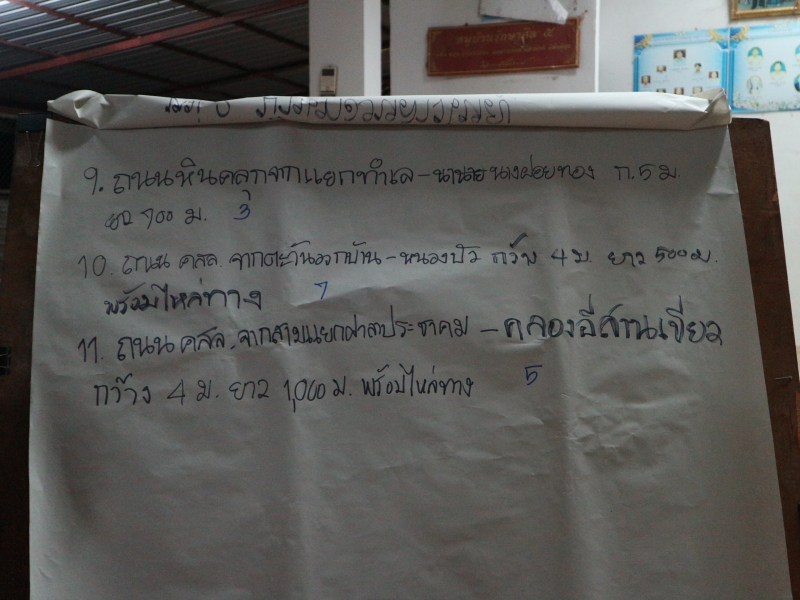 9. ถนนหินคลุกจากแยกทำเล - นานาย นางฝอยทอง ก. 5 ม.
700 ม. 3
10. ถนน คสล. จากตะวันออกบ้าน - หนองบัว กว้าง 4 ม. ยาว 500 ม.
พร้อมไหล่ทาง 7
11. ถนน คสล. จากสามแยกศาลาประชาคม - คลองอีสานเขียว
กว้าง 4 ม. ยาว 1,000 ม. พร้อมไหล่ทาง 5